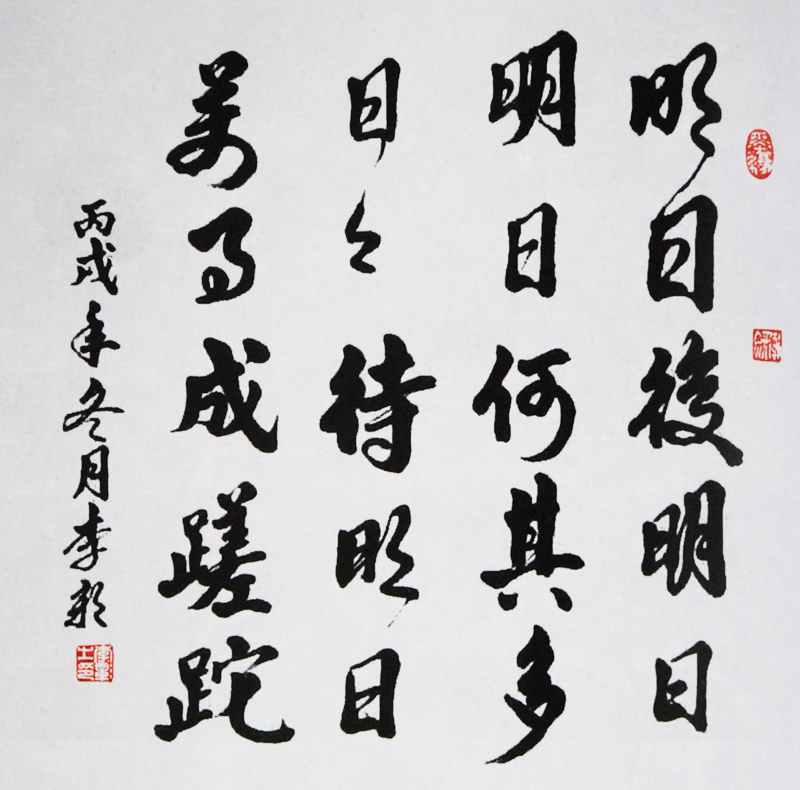 明日後明日
明日何其多
日々待明日
萬事成蹉跎
丙戌年冬月李